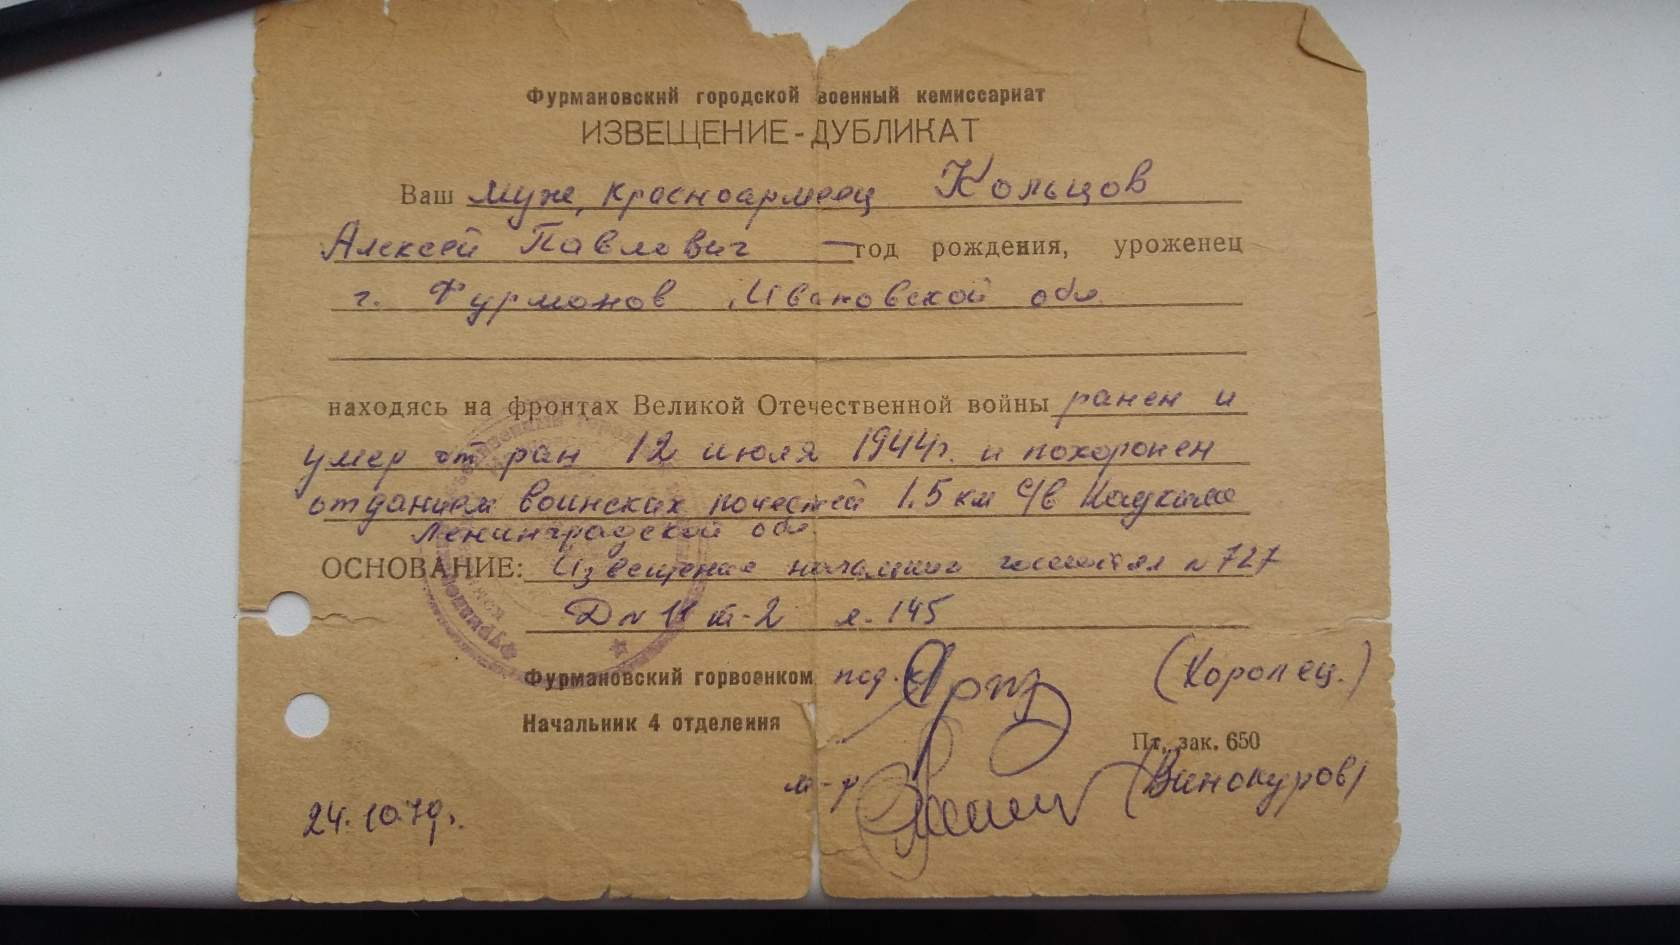 Фурмановский городской военный кемиссариат
ИЗВЕЩЕНИЕ-ДУБЛИКАТ
Ваш муж, красноармеец Кольцов
Алексей Павлович — год рождения, уроженец
г. Фурманов Ивановской обл.
находясь на фронтах Великой Отечественной войны ранен и
умер от ран 12 июля 1944г. и похоронен
отданием воинских почестей 1.5 км с/в
Ленинградской обл
ОСНОВАНИЕ: Извещение начальника госпиталя №727
Д № 11 т-2 л. 145
Фурмановский горвоенком под-к (Коропец.)
Начальник 4 отделения
Пт, зак. 650
м-р (Винокуров)
24.10.79г.